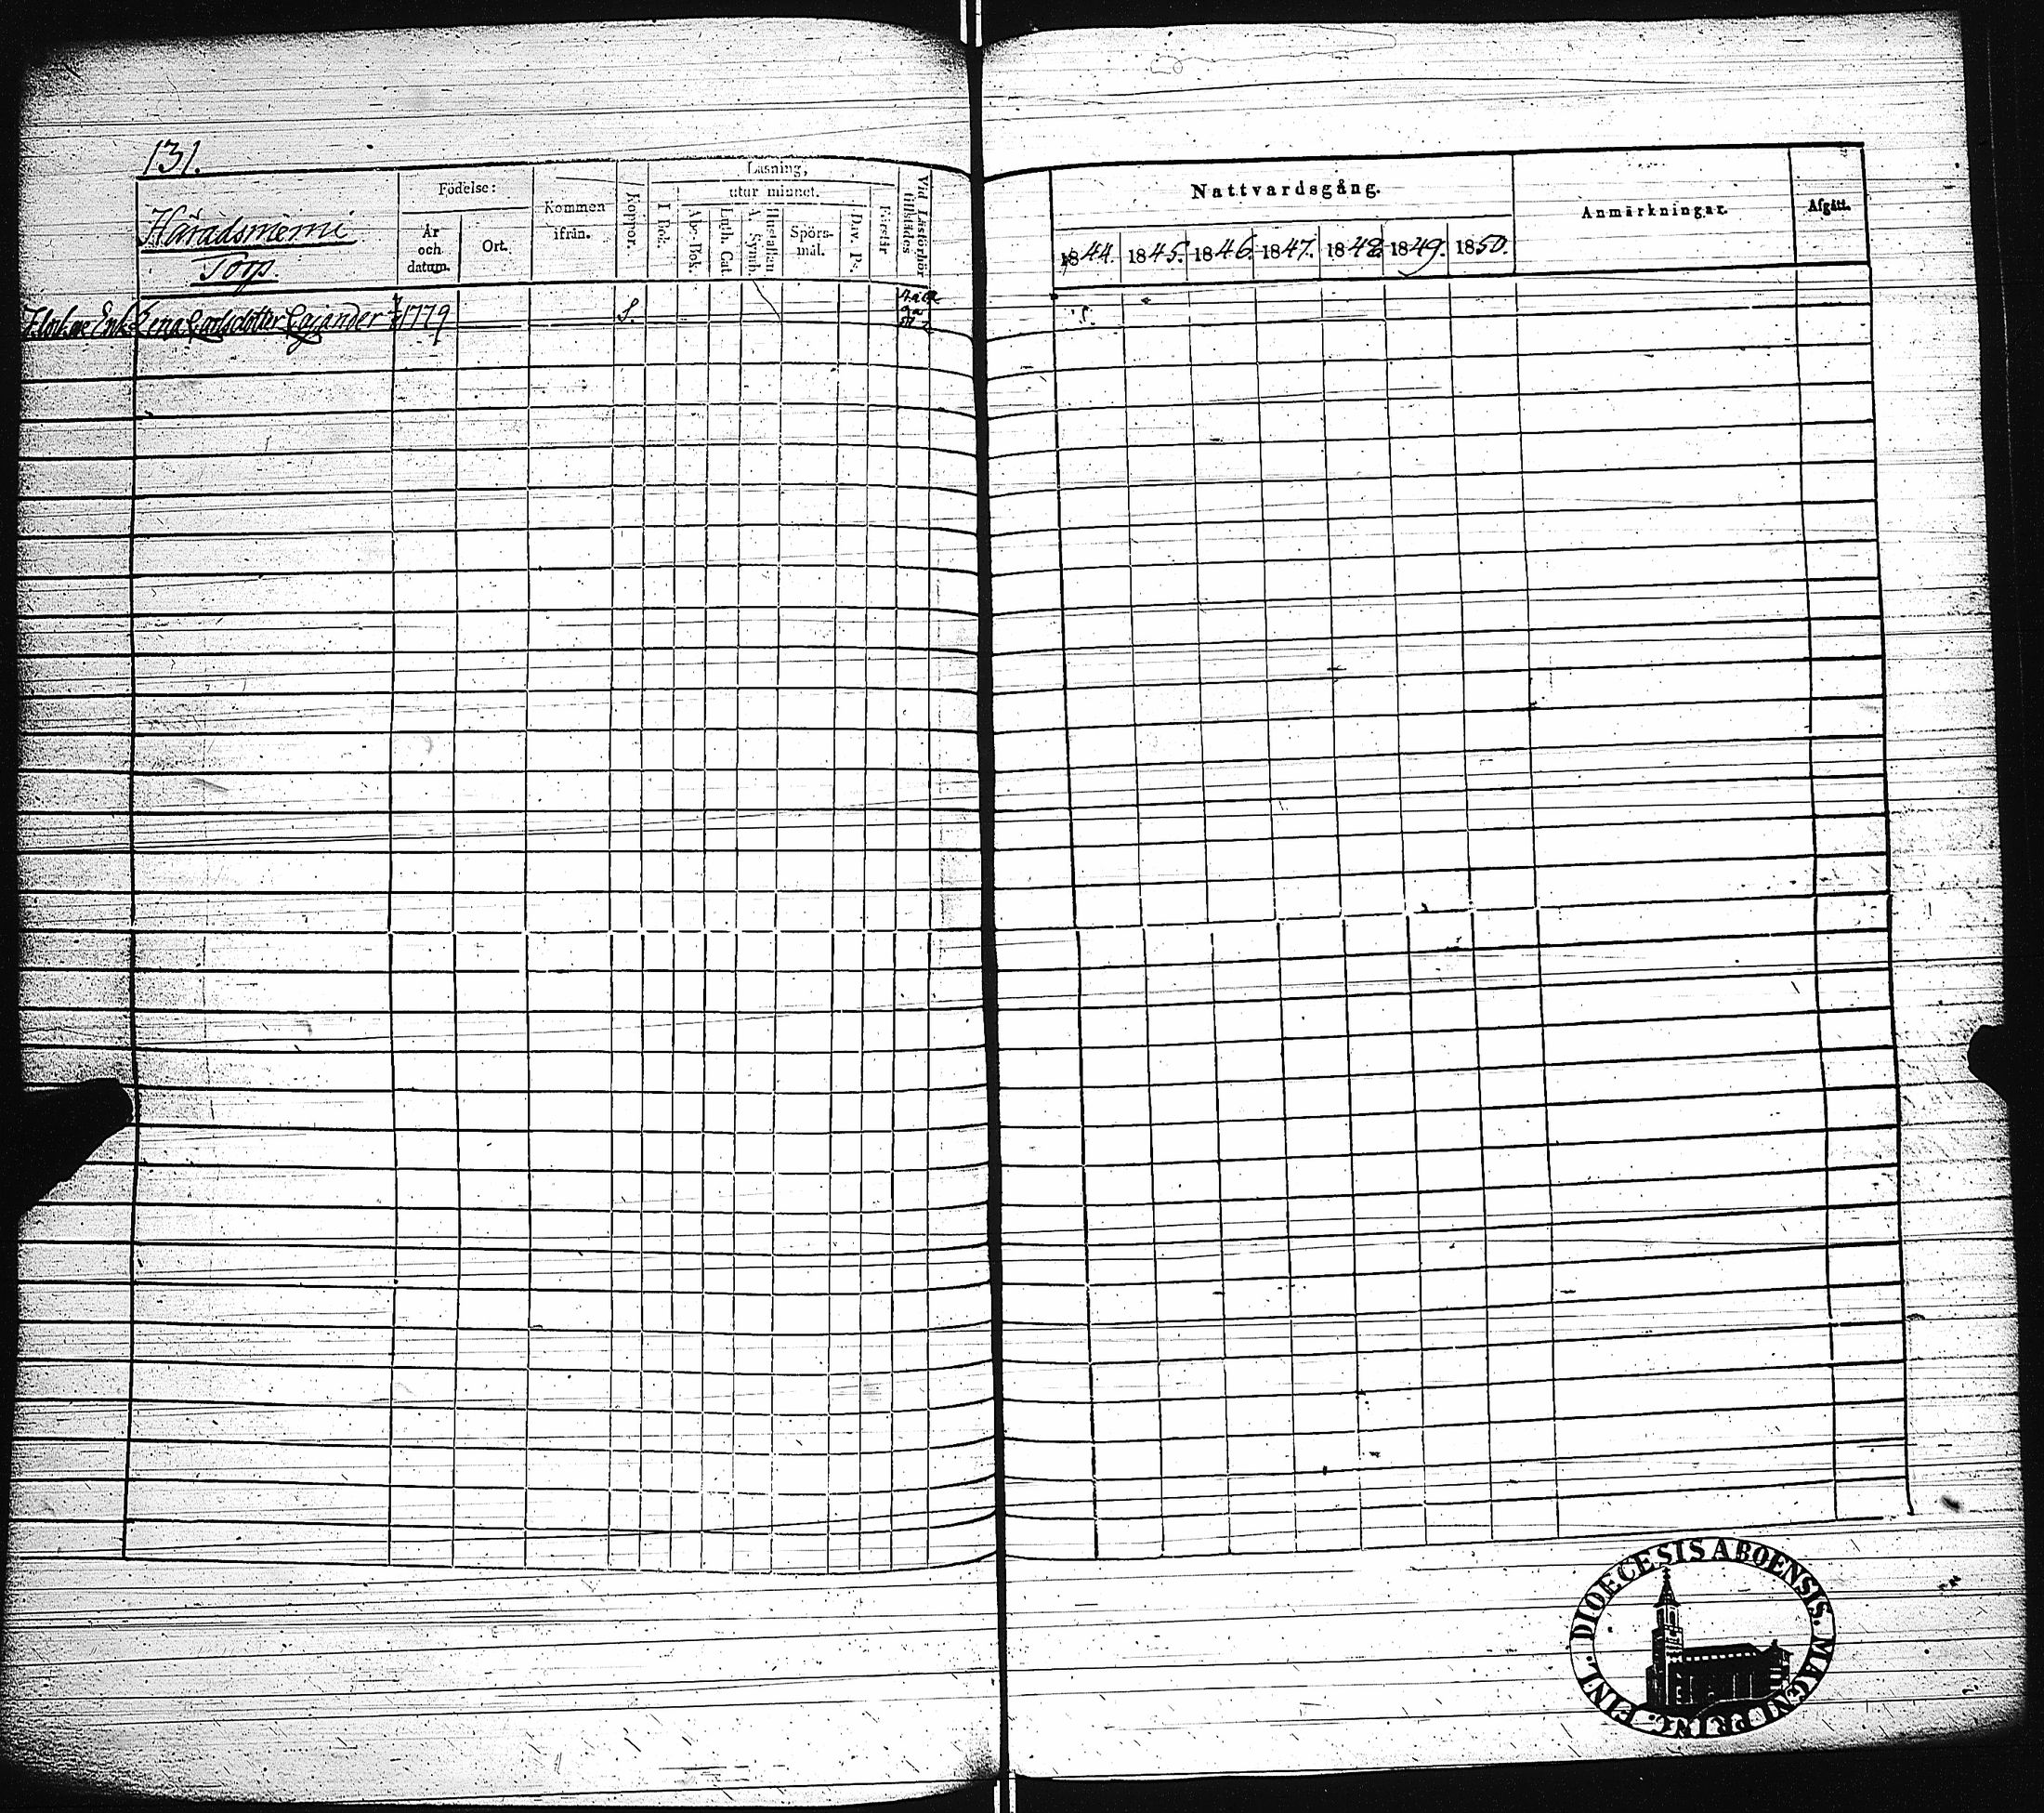 131.
Häradsmemi
Torp.
Födelse:
År
och
datum.
Ort.
Kommen
ifrån.
Koppor.
Läsning,
utur minnet.
I Bok.
Abc-Bok.
Luth. Cat.
A. Symb.
Hustaflan.
Spörs-
mål.
Dav. Ps.
Förstår
Vid Läsförhör.
tillstädes
Enk. Lena Carlsdotter Cajander 1779 S.
Nattvardsgång.
1844. 1845. 1846. 1847. 1848. 1849. 1850.
Anmärkningar.
Afgått.
DIOECESIS ABOENSIS. MAGNI PRINC. FINL.